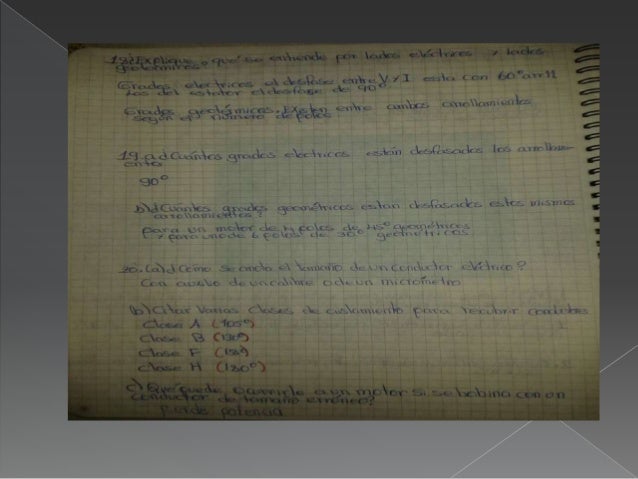 18.¿Explique qué se entiende por lados eléctricos y lados
geotérmicos
Grados electricos el desfase entre V y I esta con 60°
Los del estator el desfase de 90°
Grados geotérmicos. Existen entre ambos arrollamientos
según el número de polos
19. a.¿Cuántos grados eléctricos están desfasados los arrollami-
entos
90°
b)¿Cuántos grados geométricos estan desfasados estos mismos
arrollamientos?
para un motor de 4 polos de 45° geométricos
y para uno de 6 polos de 30° geometricos
20. (a)¿Cómo se anota el tamaño de un conductor eléctrico?
Con auxilio de un calibre o de un micrómetro
(b) Citar varias clases de aislamiento para recubrir conductores
Clase A (105°)
Clase B (130°)
Clase F
Clase H (180°)
c) Que puede ocurrirle a un motor si se bobina con un
conductor de tamaño erróneo?
Pierde potencia